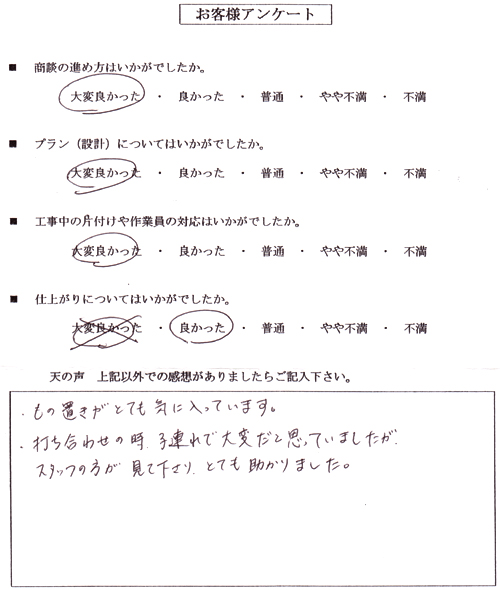 お客様アンケート
■ 商談の進め方はいかがでしたか。
大変良かった ・ 良かった ・ 普通 ・ やや不満 ・ 不満
■ プラン（設計）についてはいかがでしたか。
大変良かった ・ 良かった ・ 普通 ・ やや不満 ・ 不満
■ 工事中の片付けや作業員の対応はいかがでしたか。
大変良かった ・ 良かった ・ 普通 ・ やや不満 ・ 不満
■ 仕上がりについてはいかがでしたか。
大変良かった ・ 良かった ・ 普通 ・ やや不満 ・ 不満
天の声 上記以外での感想がありましたらご記入下さい。
・もの置きがとても気に入っています。
・打ち合わせの時、子連れで大変だと思っていましたが、
スタッフの方が見て下さり、とても助かりました。